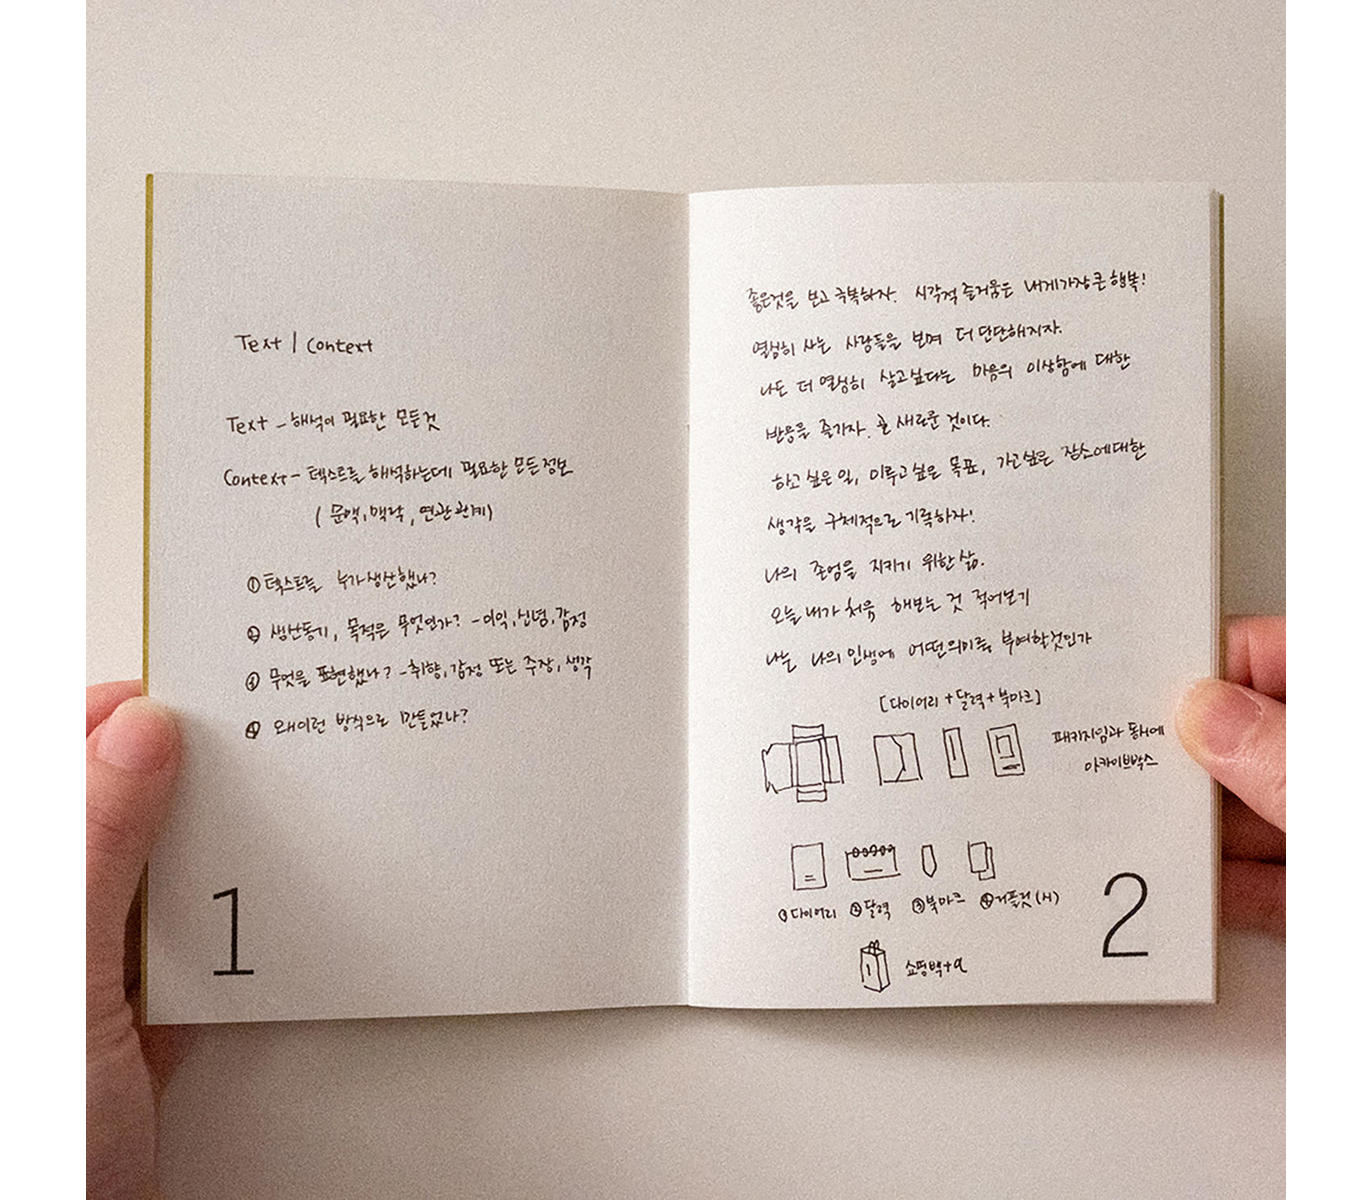 Text | Context
Text - 해석이 필요한 모든것
Context - 텍스트를 해석하는데 필요한 모든정보
( 문맥, 맥락, 연관관계)
① 텍스트를 누가생산했나?
② 생산동기, 목적은 무엇인가? - 이익, 신념, 감정
③ 무엇을 표현했나? - 취향, 감정 또는 주장, 생각
④ 왜이런 방식으로 만들었나?
1
좋은것을 보고 극복하자. 시각적 즐거움은 내게가장큰행복!
열심히 사는 사람들을 보며 더단단해지자.
나도 더 열심히 살고싶다는 마음의 이상함에 대한
반응을 즐기자. 또 새로운 것이다.
하고싶은일, 이루고싶은 목표, 가고싶은 장소에대한
생각을 구체적으로 기록하자!
나의 존엄을 지키기 위한삶.
오늘 내가 처음 해보는 것 적어보기
나는 나의인생에 어떤의미를 부여할것인가
[다이어리+달력+북마크]
패키지임과 동시에
아카이브박스
① 다이어리 ② 달력 ③ 북마크 ④ (시)
쇼핑백+α
2